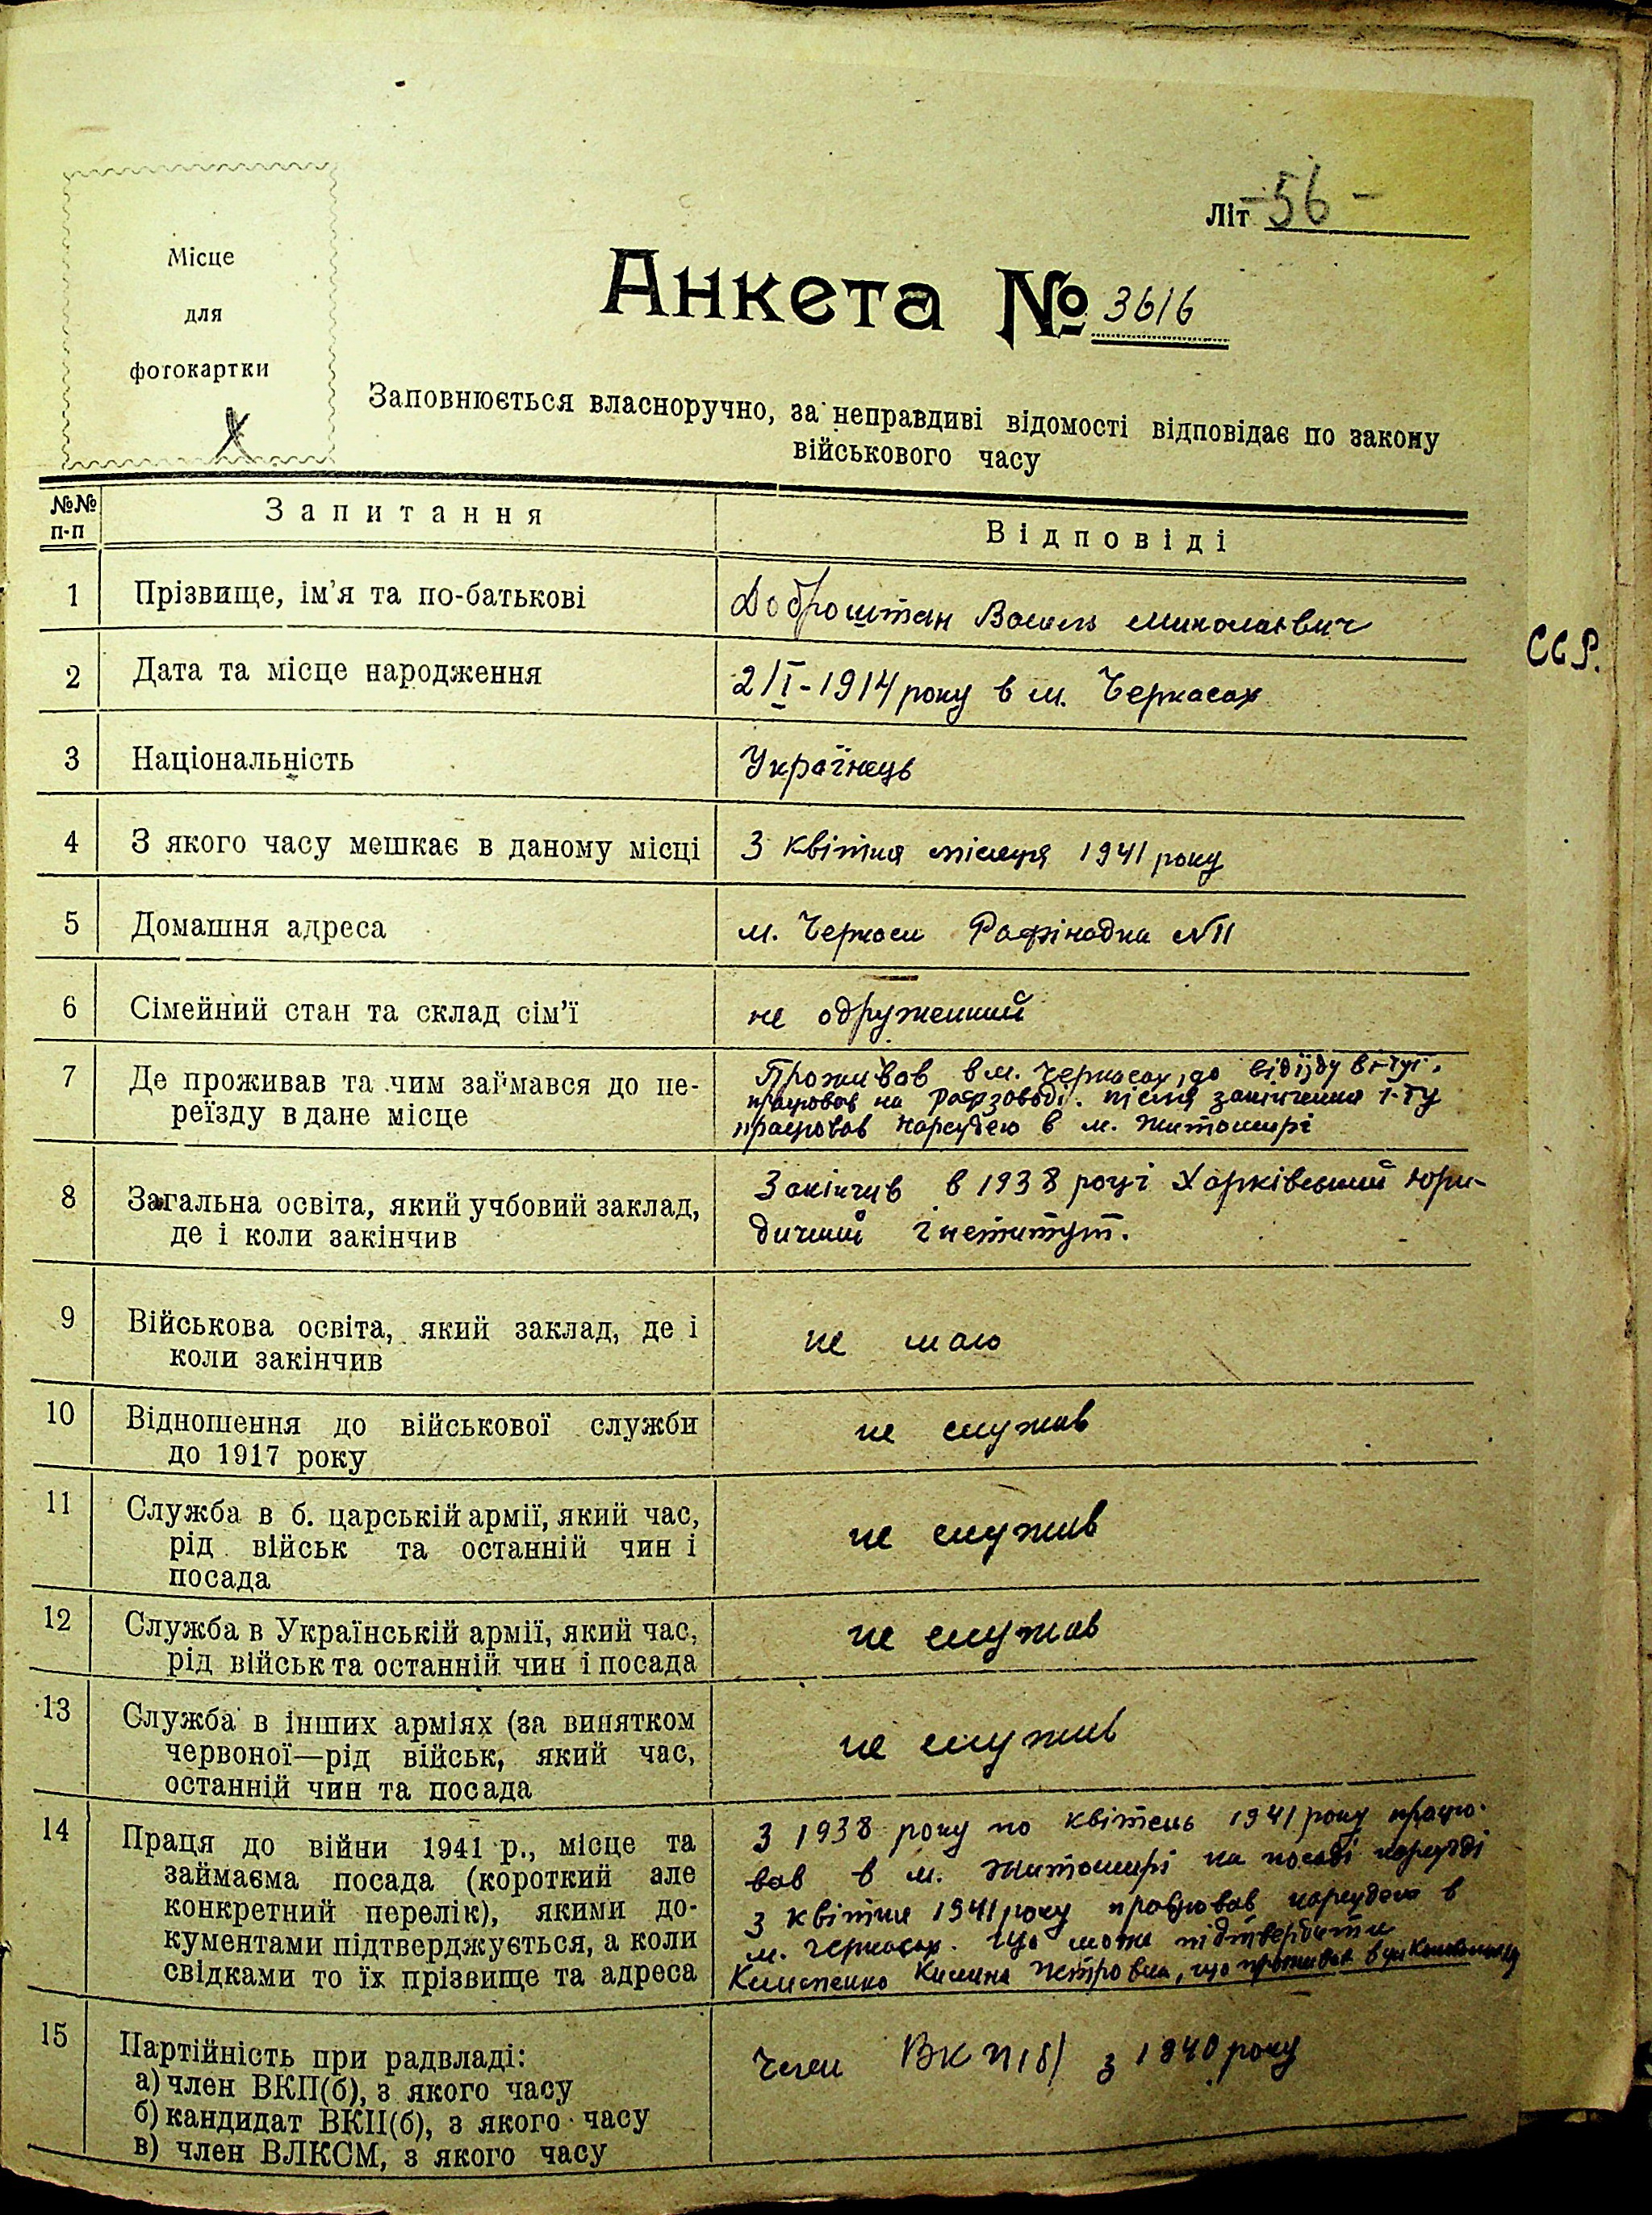 Літ -56-
Місце
для
фотокартки
Анкета № 3616
Заповнюється власноручно, за неправдиві відомості відповідає по закону
військового часу
№№
п-п
Запитання
Відповіді
1 Прізвище, ім'я та по-батькові
Доброштан Василь Миколаєвич
2 Дата та місце народження
2/I-1914 року в м. Черкасах
3 Національність
Українець
4 З якого часу мешкає в даному місці
З квітня місяця 1941 року
5 Домашня адреса
м. Черкаси Рафінадна №11
6 Сімейний стан та склад сім'ї
не одружений
7 Де проживав та чим займався до пе-
реїзду в дане місце
Проживав в м. Черкасах, до від'їзду в
працював на Рафзаводі. після закінчення
працював нарсудею в м. Житомирі
8 Загальна освіта, який учбовий заклад,
де і коли закінчив
Закінчив в 1938 році Харківський Юри-
дичний інститут.
9 Військова освіта, який заклад, де і
коли закінчив
не маю
10 Відношення до військової служби
до 1917 року
не служив
11 Служба в б. царській армії, який час,
рід військ та останній чин і
посада
не служив
12 Служба в Українській армії, який час,
рід військ та останній чин і посада
не служив
13 Служба в інших арміях (за винятком
червоної—рід військ, який час,
останній чин та посада
не служив
14 Праця до війни 1941 р., місце та
займаєма посада (короткий але
конкретний перелік), якими до-
кументами підтверджується, а коли
свідками то їх прізвище та адреса
З 1938 року по квітень 1941 року працю-
вав в м. Житомирі на посаді нарсудді
З квітня 1941 року працював нарсудею в
м. Черкасах. Що може підтвердити
Петровна, що проживає в
15 Партійність при радвладі:
а) член ВКП(б), з якого часу
б) кандидат ВКП(б), з якого часу
в) член ВЛКСМ, з якого часу
Член ВКП(б) з 1940 року